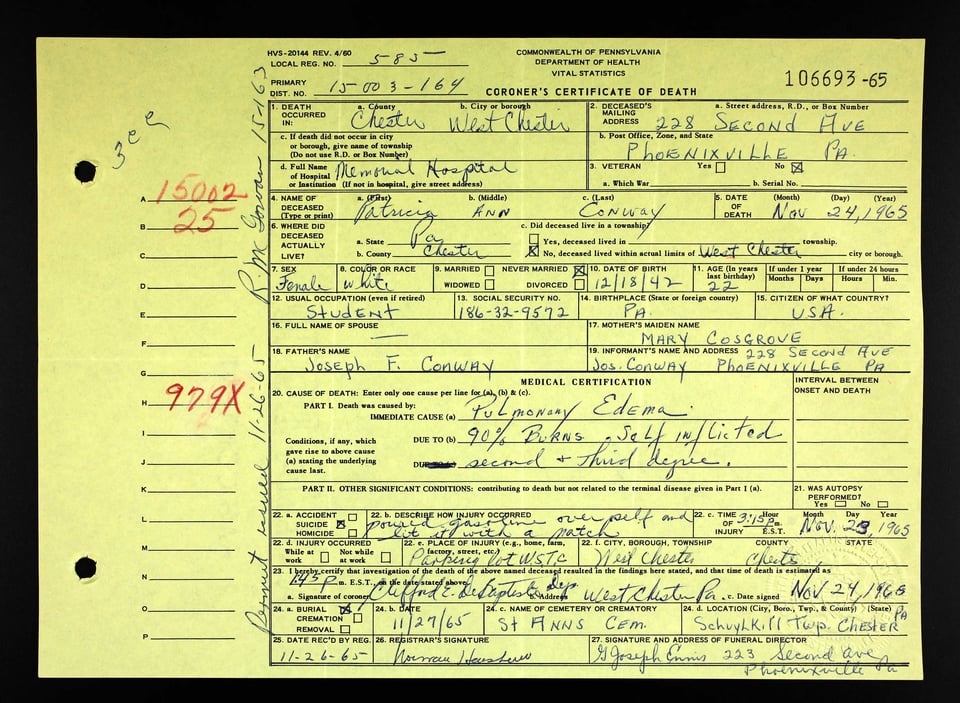 HVS-20144 REV. 4/60
LOCAL REG. NO. 585
PRIMARY
DIST. NO. 15003-164
COMMONWEALTH OF PENNSYLVANIA
DEPARTMENT OF HEALTH
VITAL STATISTICS
106693-65
CORONER'S CERTIFICATE OF DEATH
1. DEATH OCCURRED IN: a. County Chester b. City or borough West Chester
c. If death did not occur in city or borough, give name of township (Do not use R.D. or Box Number)
d. Full Name of Hospital or Institution (If not in hospital, give street address) Memorial Hospital
2. DECEASED'S MAILING ADDRESS a. Street address, R.D., or Box Number 228 Second Ave
b. Post Office, Zone, and State Phoenixville Pa.
3. VETERAN Yes No
a. Which War b. Serial No.
4. NAME OF DECEASED (Type or print) a. (First) Patricia b. (Middle) Ann c. (Last) Conway
5. DATE OF DEATH (Month) (Day) (Year) Nov 24, 1965
6. WHERE DID DECEASED ACTUALLY LIVE? a. State Pa b. County Chester
c. Did deceased live in a township?
Yes, deceased lived in township.
No, deceased lived within actual limits of West Chester city or borough.
7. SEX Female
8. COLOR OR RACE White
9. MARRIED NEVER MARRIED WIDOWED DIVORCED
10. DATE OF BIRTH 12/18/42
11. AGE (In years last birthday) 22 If under 1 year Months Days If under 24 hours Hours Min.
12. USUAL OCCUPATION (even if retired) Student
13. SOCIAL SECURITY NO. 186-32-9572
14. BIRTHPLACE (State or foreign country) PA.
15. CITIZEN OF WHAT COUNTRY? USA.
16. FULL NAME OF SPOUSE —
17. MOTHER'S MAIDEN NAME Mary Cosgrove
18. FATHER'S NAME Joseph F. Conway
19. INFORMANT'S NAME AND ADDRESS 228 Second Ave
Jos. Conway Phoenixville Pa
MEDICAL CERTIFICATION
INTERVAL BETWEEN ONSET AND DEATH
20. CAUSE OF DEATH: Enter only one cause per line for (a), (b) & (c).
PART I. Death was caused by:
IMMEDIATE CAUSE (a) Pulmonary Edema.
Conditions, if any, which gave rise to above cause (a) stating the underlying cause last.
DUE TO (b) 90% Burns, Self inflicted
second & third degree.
PART II. OTHER SIGNIFICANT CONDITIONS: contributing to death but not related to the terminal disease given in Part I (a).
21. WAS AUTOPSY PERFORMED? Yes No
22. a. ACCIDENT SUICIDE HOMICIDE
22. b. DESCRIBE HOW INJURY OCCURRED
poured gasoline over self and
lit it with a match
22. c. TIME OF INJURY Hour 3:15 P.m. E.S.T. Month Day Year Nov. 23, 1965
22. d. INJURY OCCURRED While at work Not while at work
22. e. PLACE OF INJURY (e.g., home, farm, factory, street, etc.) Parking lot WSTC
22. f. CITY, BOROUGH, TOWNSHIP COUNTY STATE West Chester Chester
23. I hereby certify that investigation of the death of the above named deceased resulted in the findings here stated, and that time of death is estimated as
1:45 P m. E.S.T., on the date stated above.
a. Signature of coroner Clifford E. DeBaptiste Dep b. Address West Chester Pa c. Date signed Nov 24, 1965
24. a. BURIAL CREMATION REMOVAL
24. b. DATE 11/27/65
24. c. NAME OF CEMETERY OR CREMATORY St Anns Cem.
24. d. LOCATION (City, Boro., Twp., & County) (State) Schuylkill Twp. Chester PA
25. DATE REC'D BY REG. 11-26-65
26. REGISTRAR'S SIGNATURE
27. SIGNATURE AND ADDRESS OF FUNERAL DIRECTOR
G Joseph Ennis 223 Second Ave
Phoenixville Pa
A 15002
B 25
C
D
E
F
G
H 979X
I
J
K
L
M
N
O
P
Permit issued 11-26-65 R. McGowan 15-163